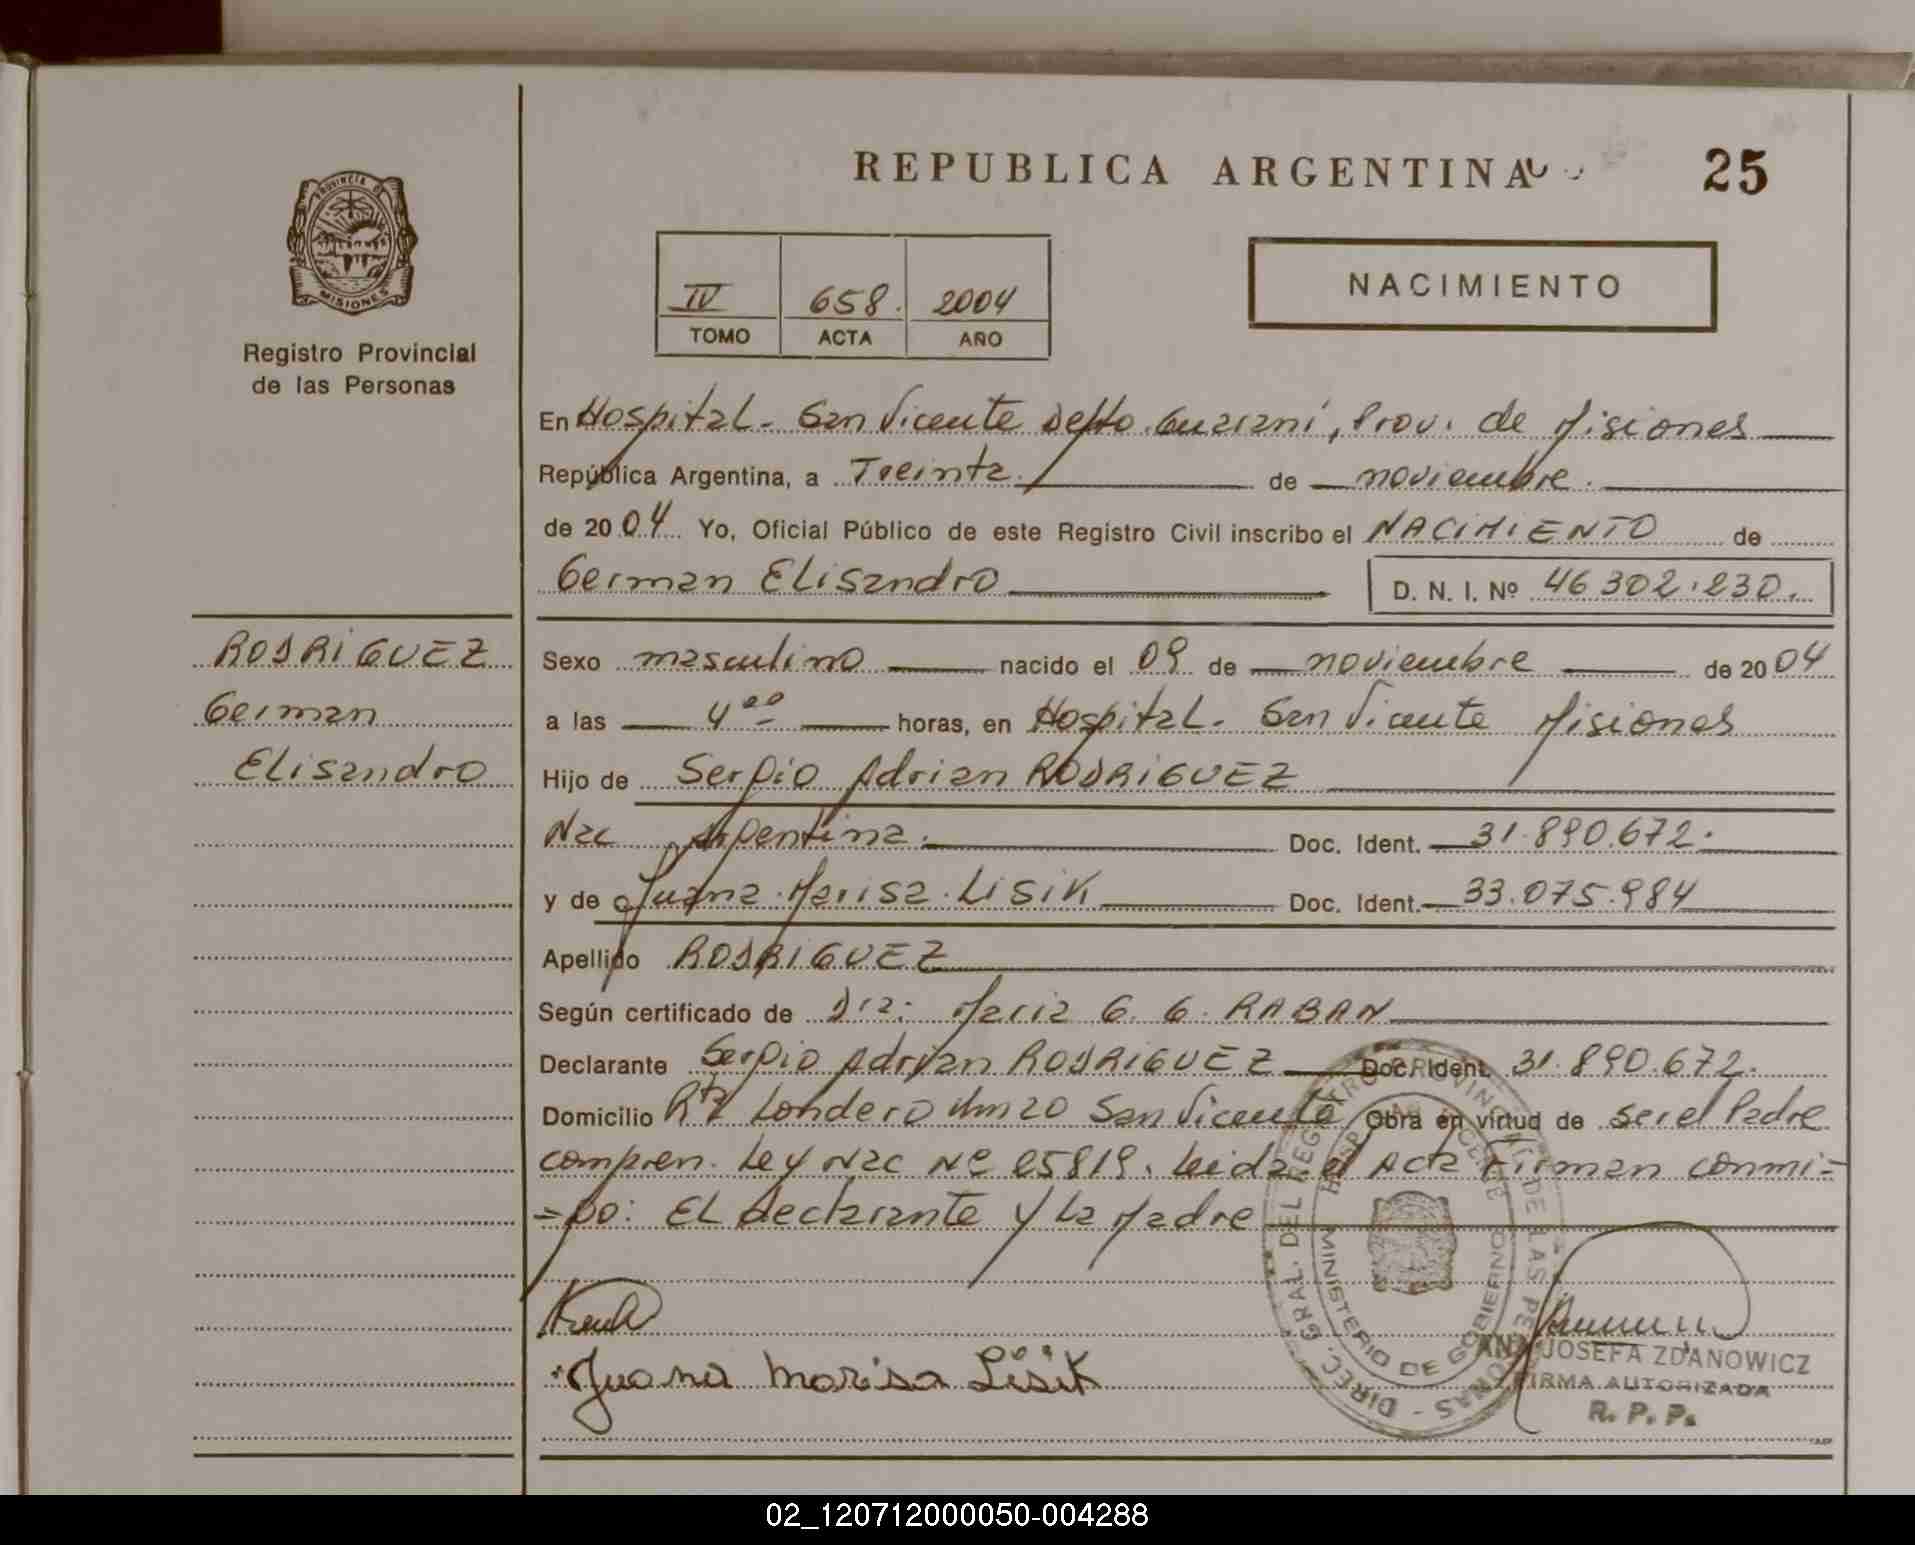 REPUBLICA ARGENTINA
25
PROVINCIA DE
MISIONES
Registro Provincial
de las Personas
IV 658. 2004
TOMO ACTA AÑO
NACIMIENTO
En Hospital - San Vicente Depto. Guarani, Prov. de Misiones
República Argentina, a Treinta. de noviembre.
de 2004 Yo, Oficial Público de este Registro Civil inscribo el NACIMIENTO de
German Elisandro D. N. I. Nº 46 302.230.
RODRIGUEZ
German
Elisandro
Sexo masculino nacido el 09 de noviembre de 2004
a las 4 00 horas, en Hospital - San Vicente Misiones
Hijo de Sergio Adrian RODRIGUEZ
Nac Argentina. Doc. Ident. 31.890.672.
y de Juana Marisa LISIK Doc. Ident. 33.075.984
Apellido RODRIGUEZ
Según certificado de Dra. Maria G. G. RABAN
Declarante Sergio Adrian RODRIGUEZ Doc. Ident. 31.890.672.
Domicilio Rta Londero Km 20 San Vicente Obra en virtud de ser el Padre
compren. Ley Nac Nº 25819. Leida el Acta Firman conmi-
=go: El declarante y la Madre
Juana Marisa Lisik
DIREC. GRAL. DEL REGISTRO PROVINCIAL DE LAS PERSONAS
MINISTERIO DE GOBIERNO
ANA JOSEFA ZDANOWICZ
FIRMA AUTORIZADA
R. P. P.
02_120712000050-004288